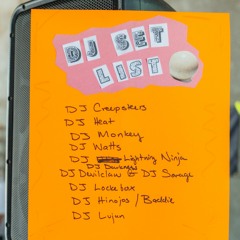 DJ SET
LIST
DJ Creepsters
DJ Heat
DJ Monkey
DJ Watts
DJ Lightning Ninja
DJ
DJ Devilclaw & DJ Savage
DJ Lockebox
DJ Hinojos / Baddie
DJ Lujan